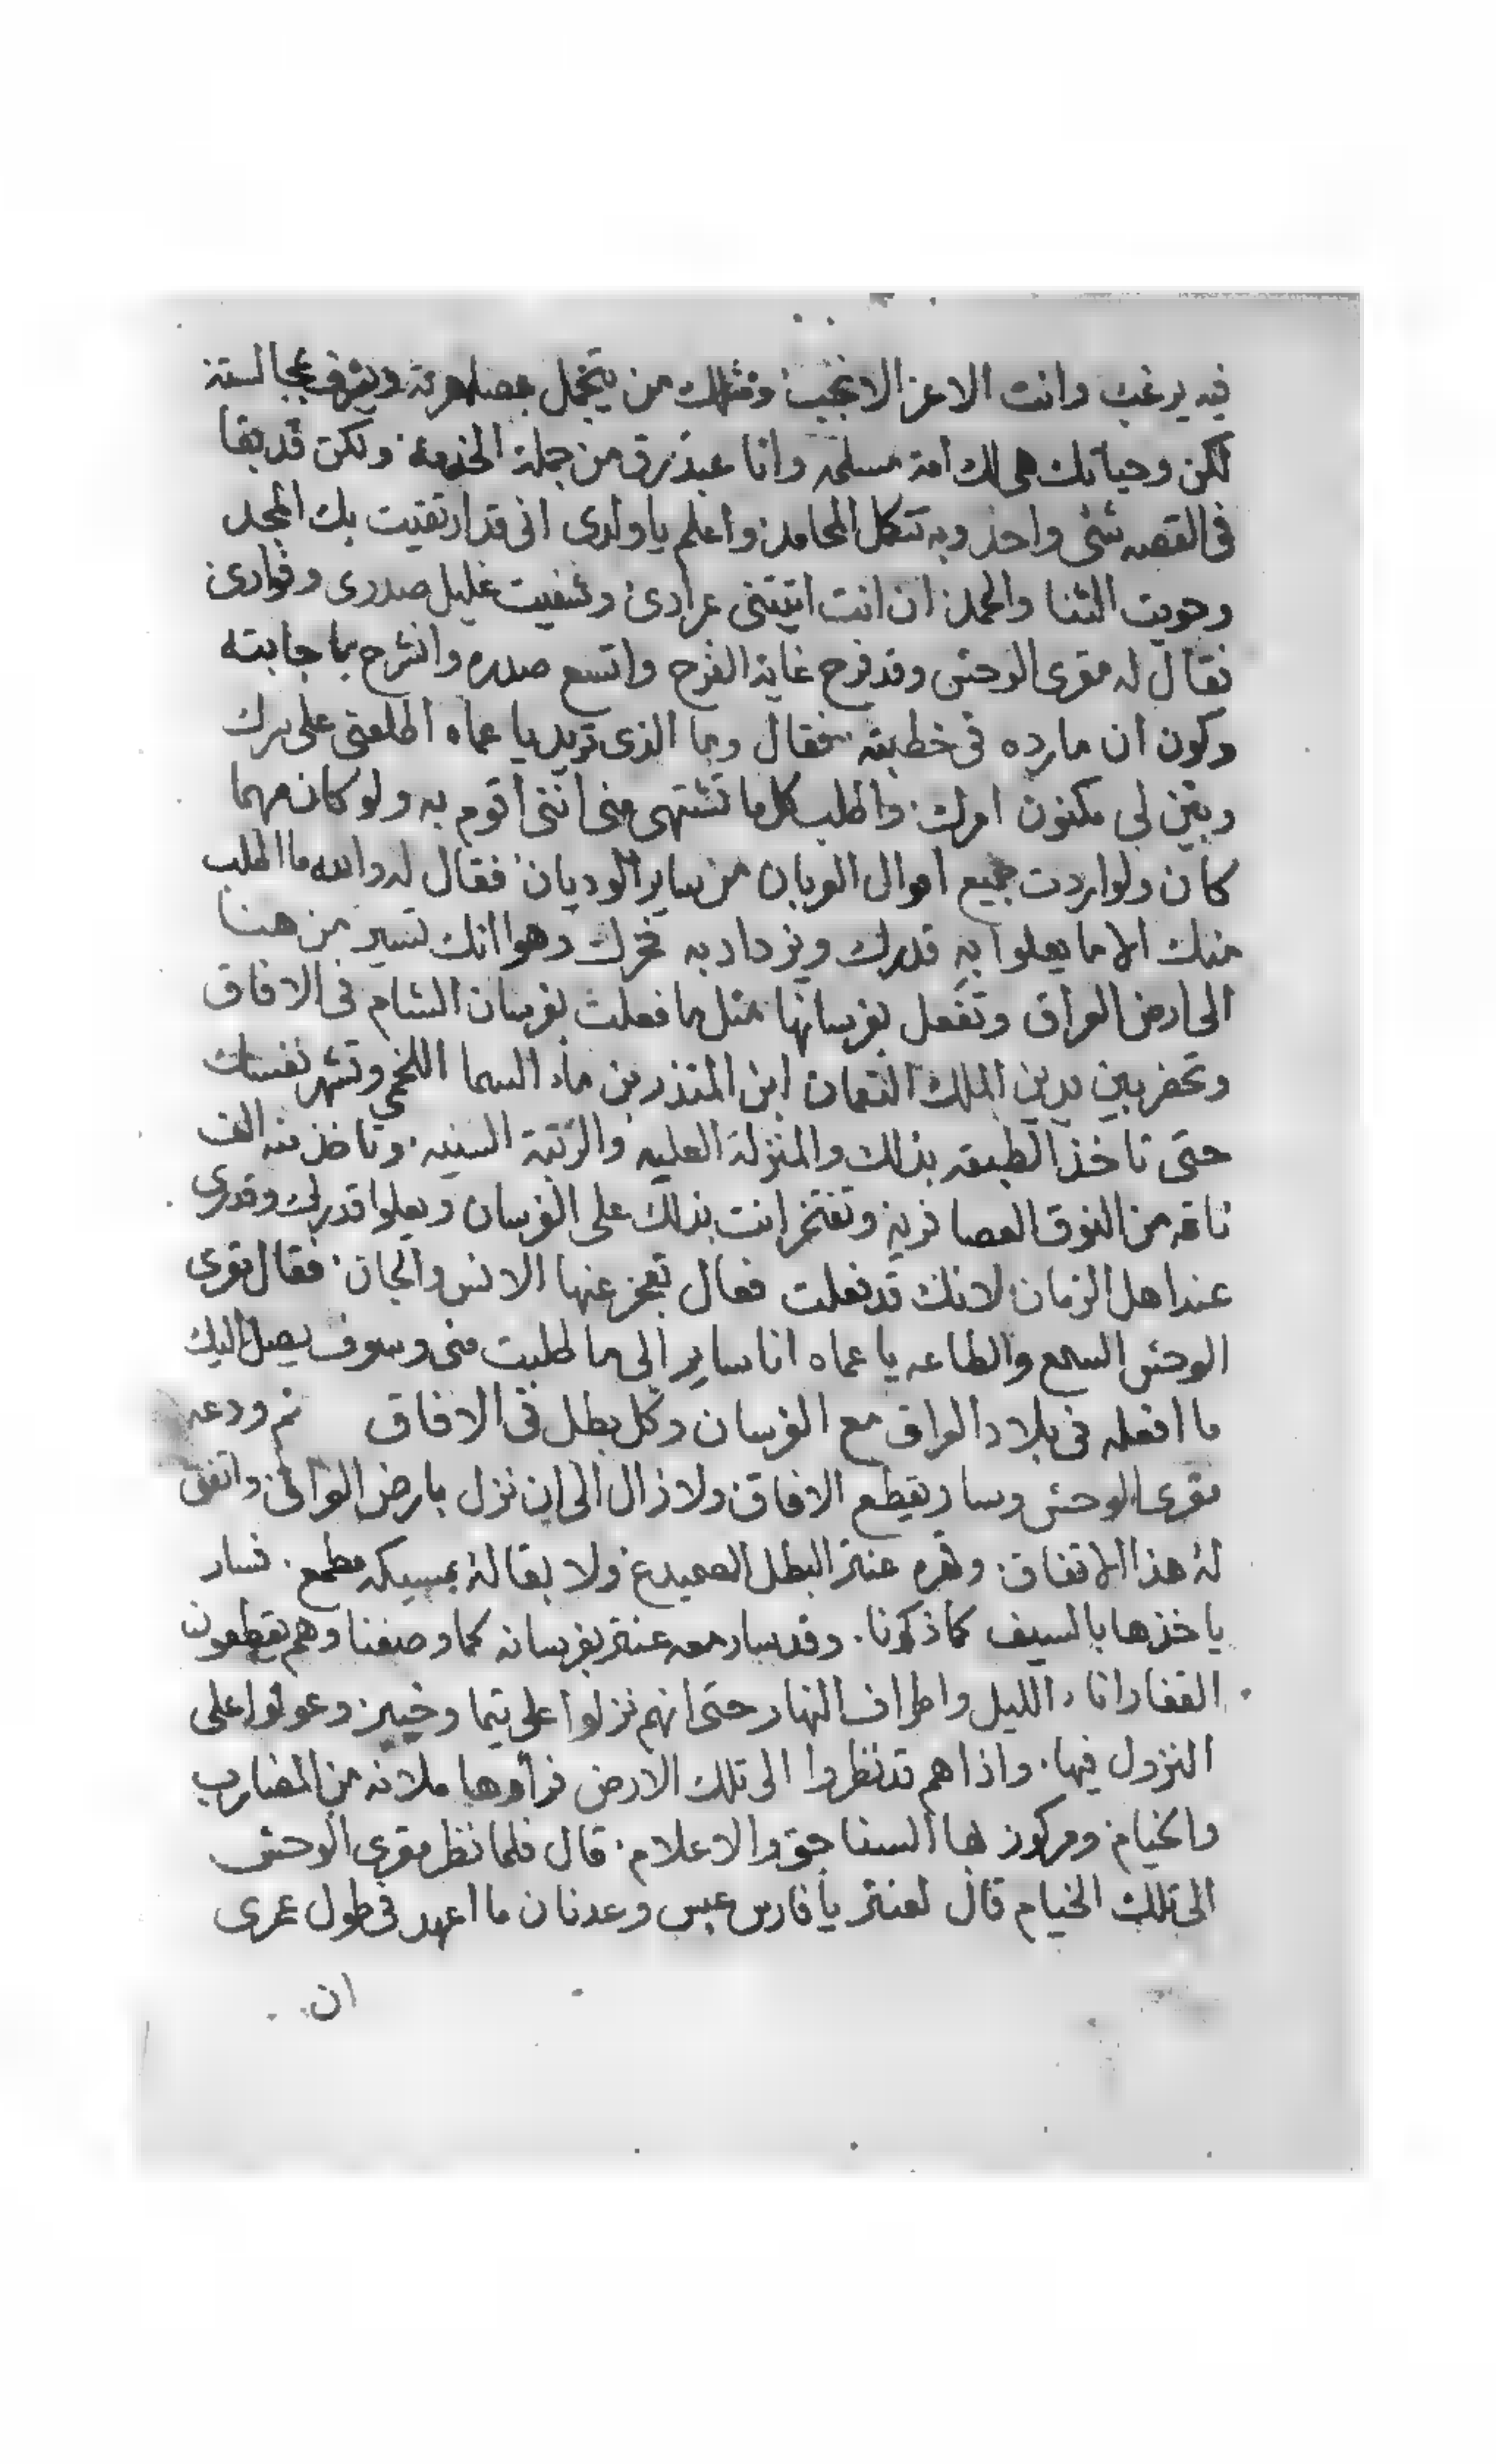 فيه يرغب وانت الاعز الانجب ومثلك من يتجمل بمصاهرته ويتشرف بمجالسته
لكن وحياتك هى لك امة مسلمه وانا عبد رق من جملة الخدمة ولكن قد بقا
فى القصه شئ واحد وبه تتكمل المحامد واعلم يا ولدى انى قد ارتقيت بك المجد
وحويت الثنا والحمد ان انت اتيتنى بمرادى وشفيت غليل صدرى وفوادى
فقال له مقرى الوحش وقد فرح غاية الفرح واتسع صدره وانشرح بما جابته
وكون ان ما رده فى خطبته فقال وما الذى تريد يا عماه اطلعنى على سرك
وبين لى مكنون امرك واطلب كل ما تشتهى منى اننى اقوم به ولو كان مهما
كان ولو اردت جميع اموال العربان من ساير الوديان فقال له والله ما اطلب
منك الا ما يعلوا به قدرك ويزداد به فخرك وهو انك تسير من هنا
الى ارض العراق وتفعل بفرسانها مثل ما فعلت بفرسان الشام فى الافاق
وتحضر بين يدين الملك النعمان ابن المنذر بن ماء السما اللخمي وتشهر نفسك
حتى تاخذ الطبقه بذلك والمنزلة العليه والرتبة السنيه وتاخذ منه الف
ناقه من النوق العصافريه وتفتخر انت بذلك على الفرسان ويعلوا قدرك وقدرى
عند اهل الزمان لانك قد فعلت فعال تعجز عنها الانس والجان فقال مقرى
الوحش السمع والطاعه يا عماه انا ساير الى ما طلبت منى وسوف يصل اليك
ما افعله فى بلاد العراق مع الفرسان وكل بطل فى الافاق ثم ودعه
مقرى الوحش وسار يقطع الافاق ولا زال الى ان نزل بارض العراق واتفق
له هذا الاتفاق وقهره عنتر البطل الصميدع ولا بقا له بمسيكه مطمع فسار
ياخذها بالسيف كما ذكرنا وقد سار معه عنتر بفرسانه كما وصفنا وهم يقطعون
القفار اناء الليل واطراف النهار حتى انهم نزلوا على تيما وخيبر وعولوا على
النزول فيها واذا هم قد نظروا الى تلك الارض فرأوها ملانه من المضارب
والخيام ومركوز لها السناجق والاعلام قال فلما نظر مقرى الوحش
الى تلك الخيام قال لعنتر يا فارس عبس وعدنان ما اعهد فى طول عمرى
ان